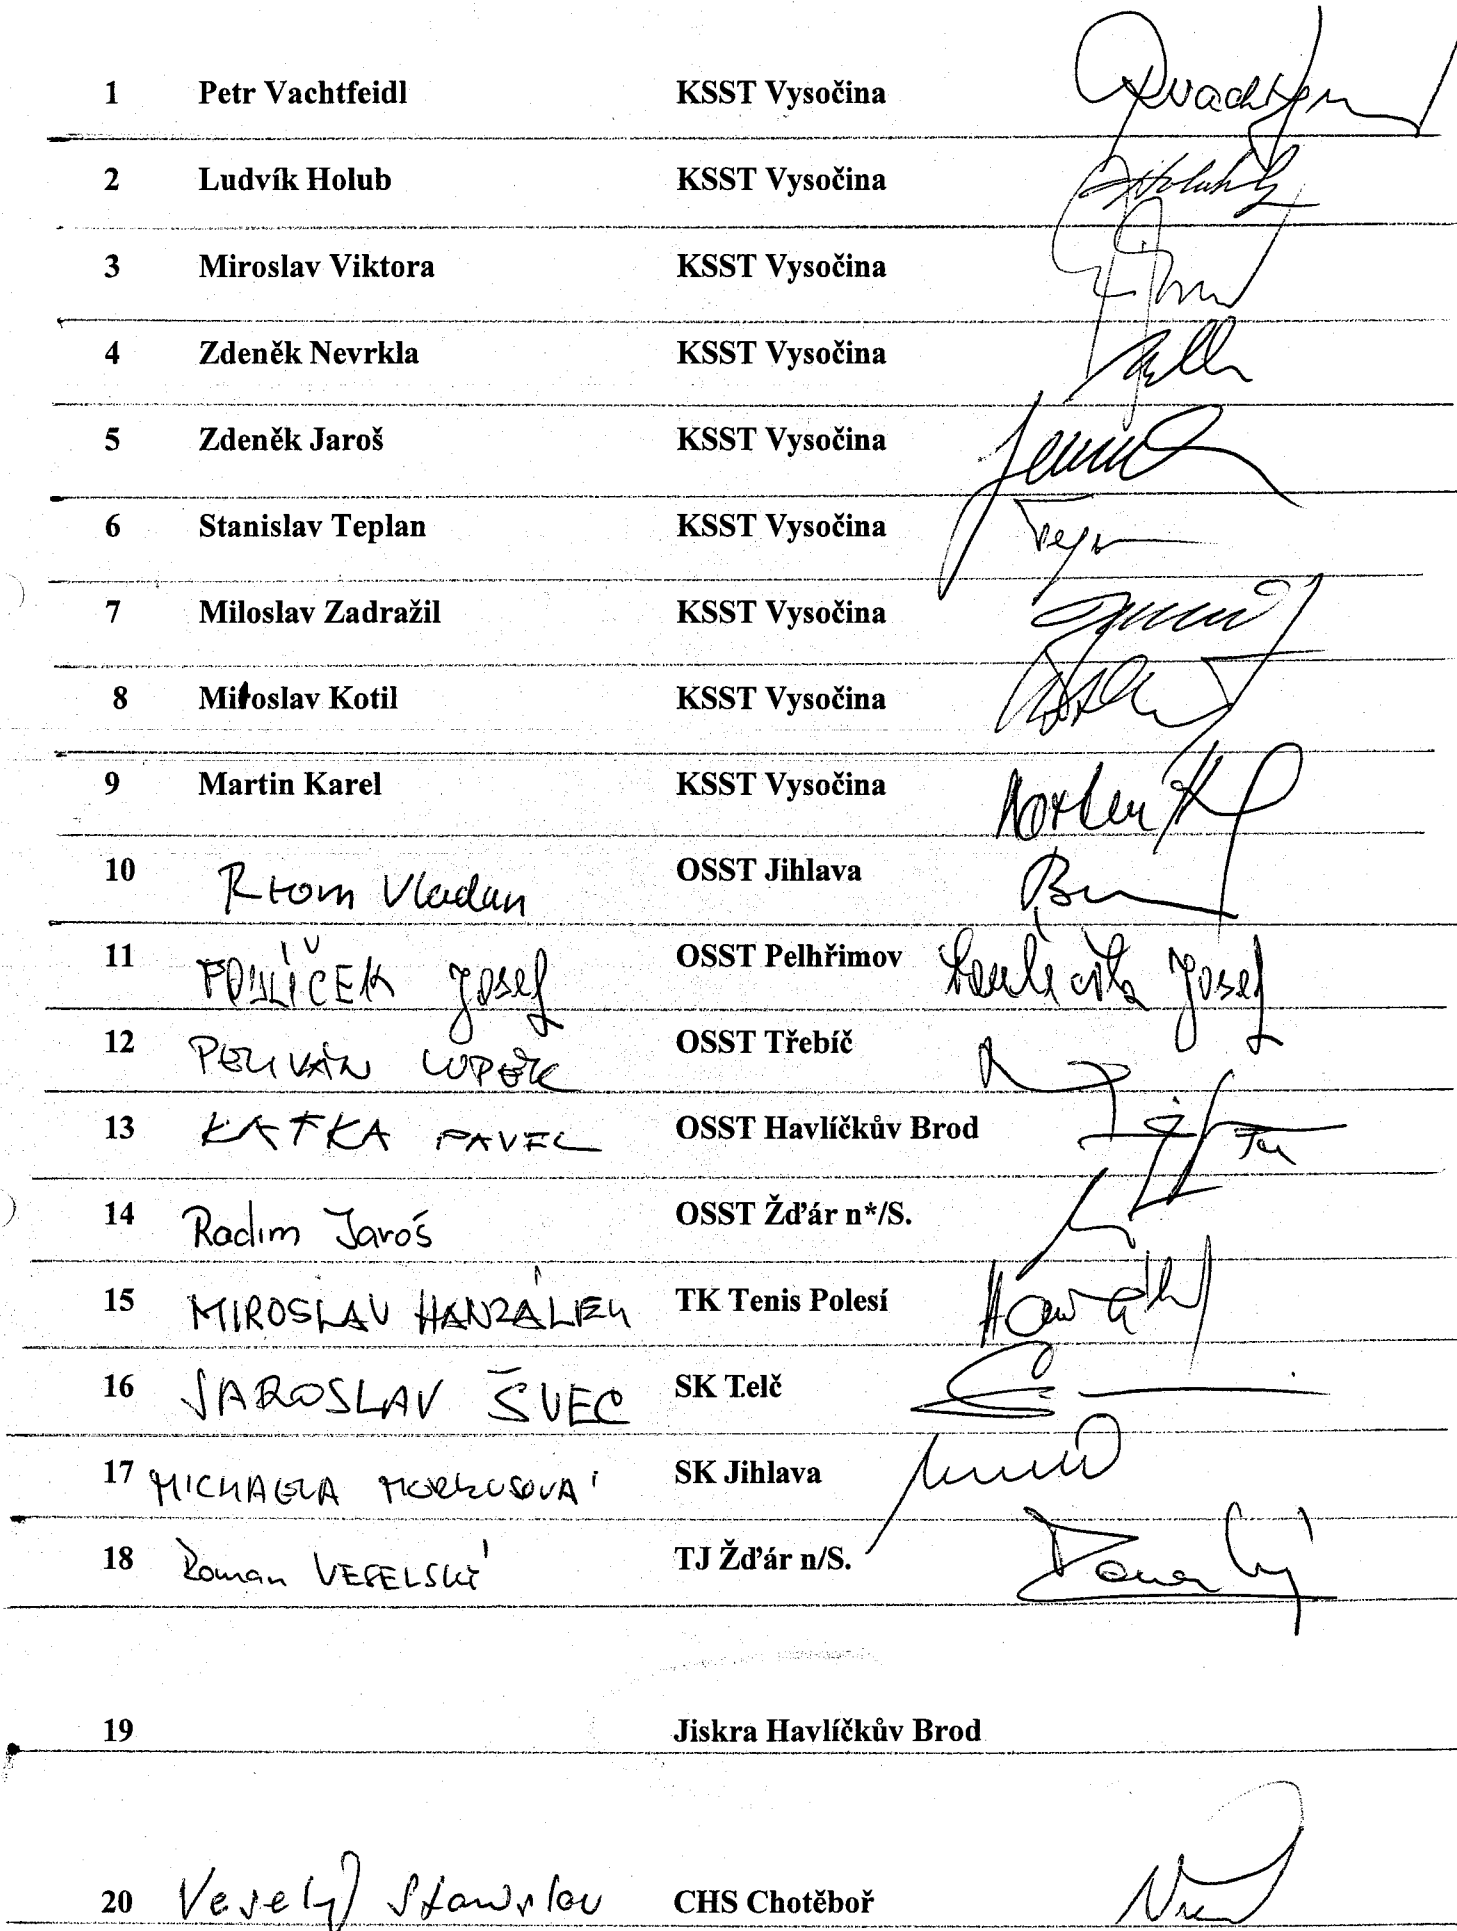 1 Petr Vachtfeidl KSST Vysočina
2 Ludvík Holub KSST Vysočina
3 Miroslav Viktora KSST Vysočina
4 Zdeněk Nevrkla KSST Vysočina
5 Zdeněk Jaroš KSST Vysočina
6 Stanislav Teplan KSST Vysočina
7 Miloslav Zadražil KSST Vysočina
8 Miroslav Kotil KSST Vysočina
9 Martin Karel KSST Vysočina
10 Vladan OSST Jihlava
11 Josef OSST Pelhřimov Josef
12 OSST Třebíč
13 KAFKA PAVEL OSST Havlíčkův Brod
14 Radim Jaroš OSST Žďár n*/S.
15 MIROSLAV HANZÁLEK TK Tenis Polesí
16 JAROSLAV ŠVEC SK Telč
17 MICHAELA SK Jihlava
18 Roman VESELSKÝ TJ Žďár n/S.
19 Jiskra Havlíčkův Brod
20 Veselý Stanislav CHS Chotěboř